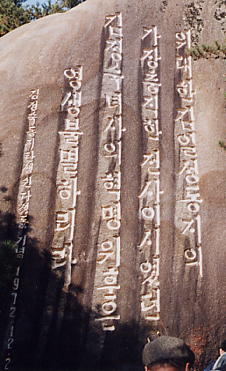 위대한 김일성동지의
가장 충직한 전사이시였던
김정숙녀사의 혁명위훈은
영생불멸하리라
김정숙 기념 1972.12.2